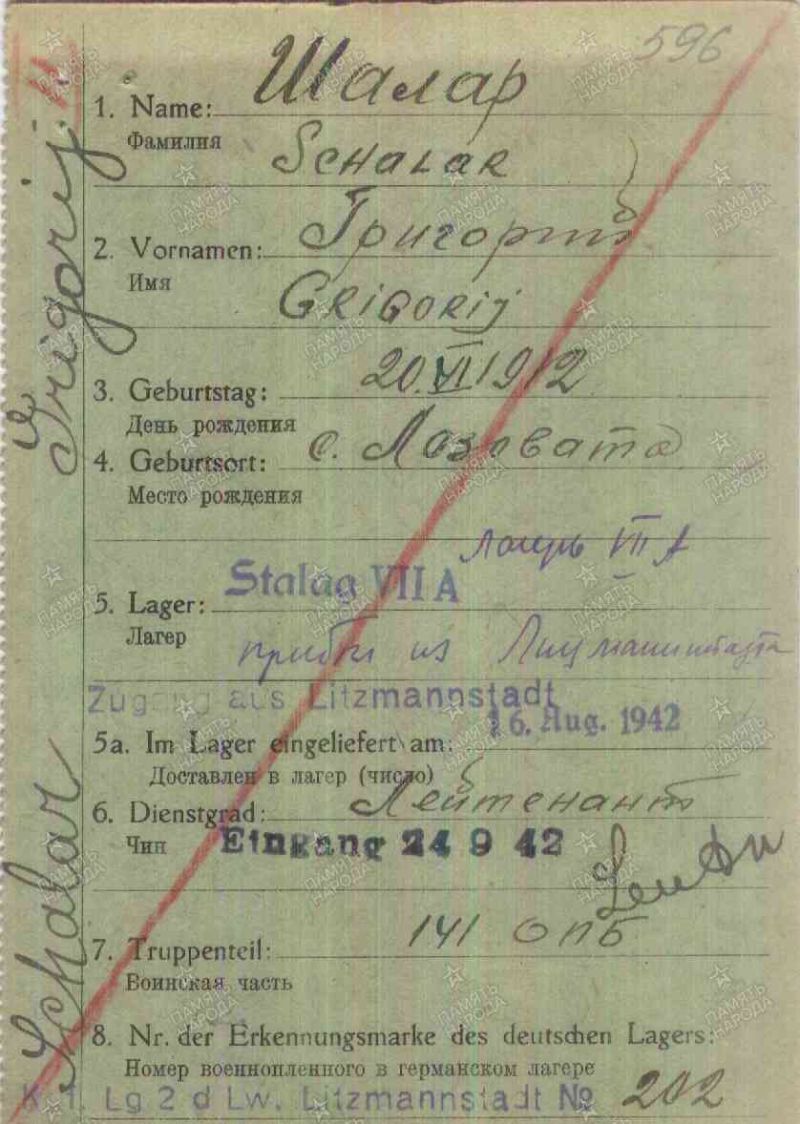 596
Шалар
1. Name:
Фамилия
SCHALAR
Григорий
2. Vornamen:
Имя
GRIGORIJ
20.VI 1912
3. Geburtstag:
День рождения
с. Лозовата
4. Geburtsort:
Место рождения
лагерь VII A
Stalag VII A
5. Lager:
Лагер
прибыл из Лицманштадта
Zugang aus Litzmannstadt
16. Aug. 1942
5a. Im Lager eingeliefert am:
Доставлен в лагер (число)
Лейтенант
6. Dienstgrad:
Чин
Eingang 24 9 42
141 ОПБ
7. Truppenteil:
Воинская часть
8. Nr. der Erkennungsmarke des deutschen Lagers:
Номер военнопленного в германском лагере
Lg 2 d Lw. Litzmannstadt № 202
Schalar Grigorij
ПАМЯТЬ НАРОДА